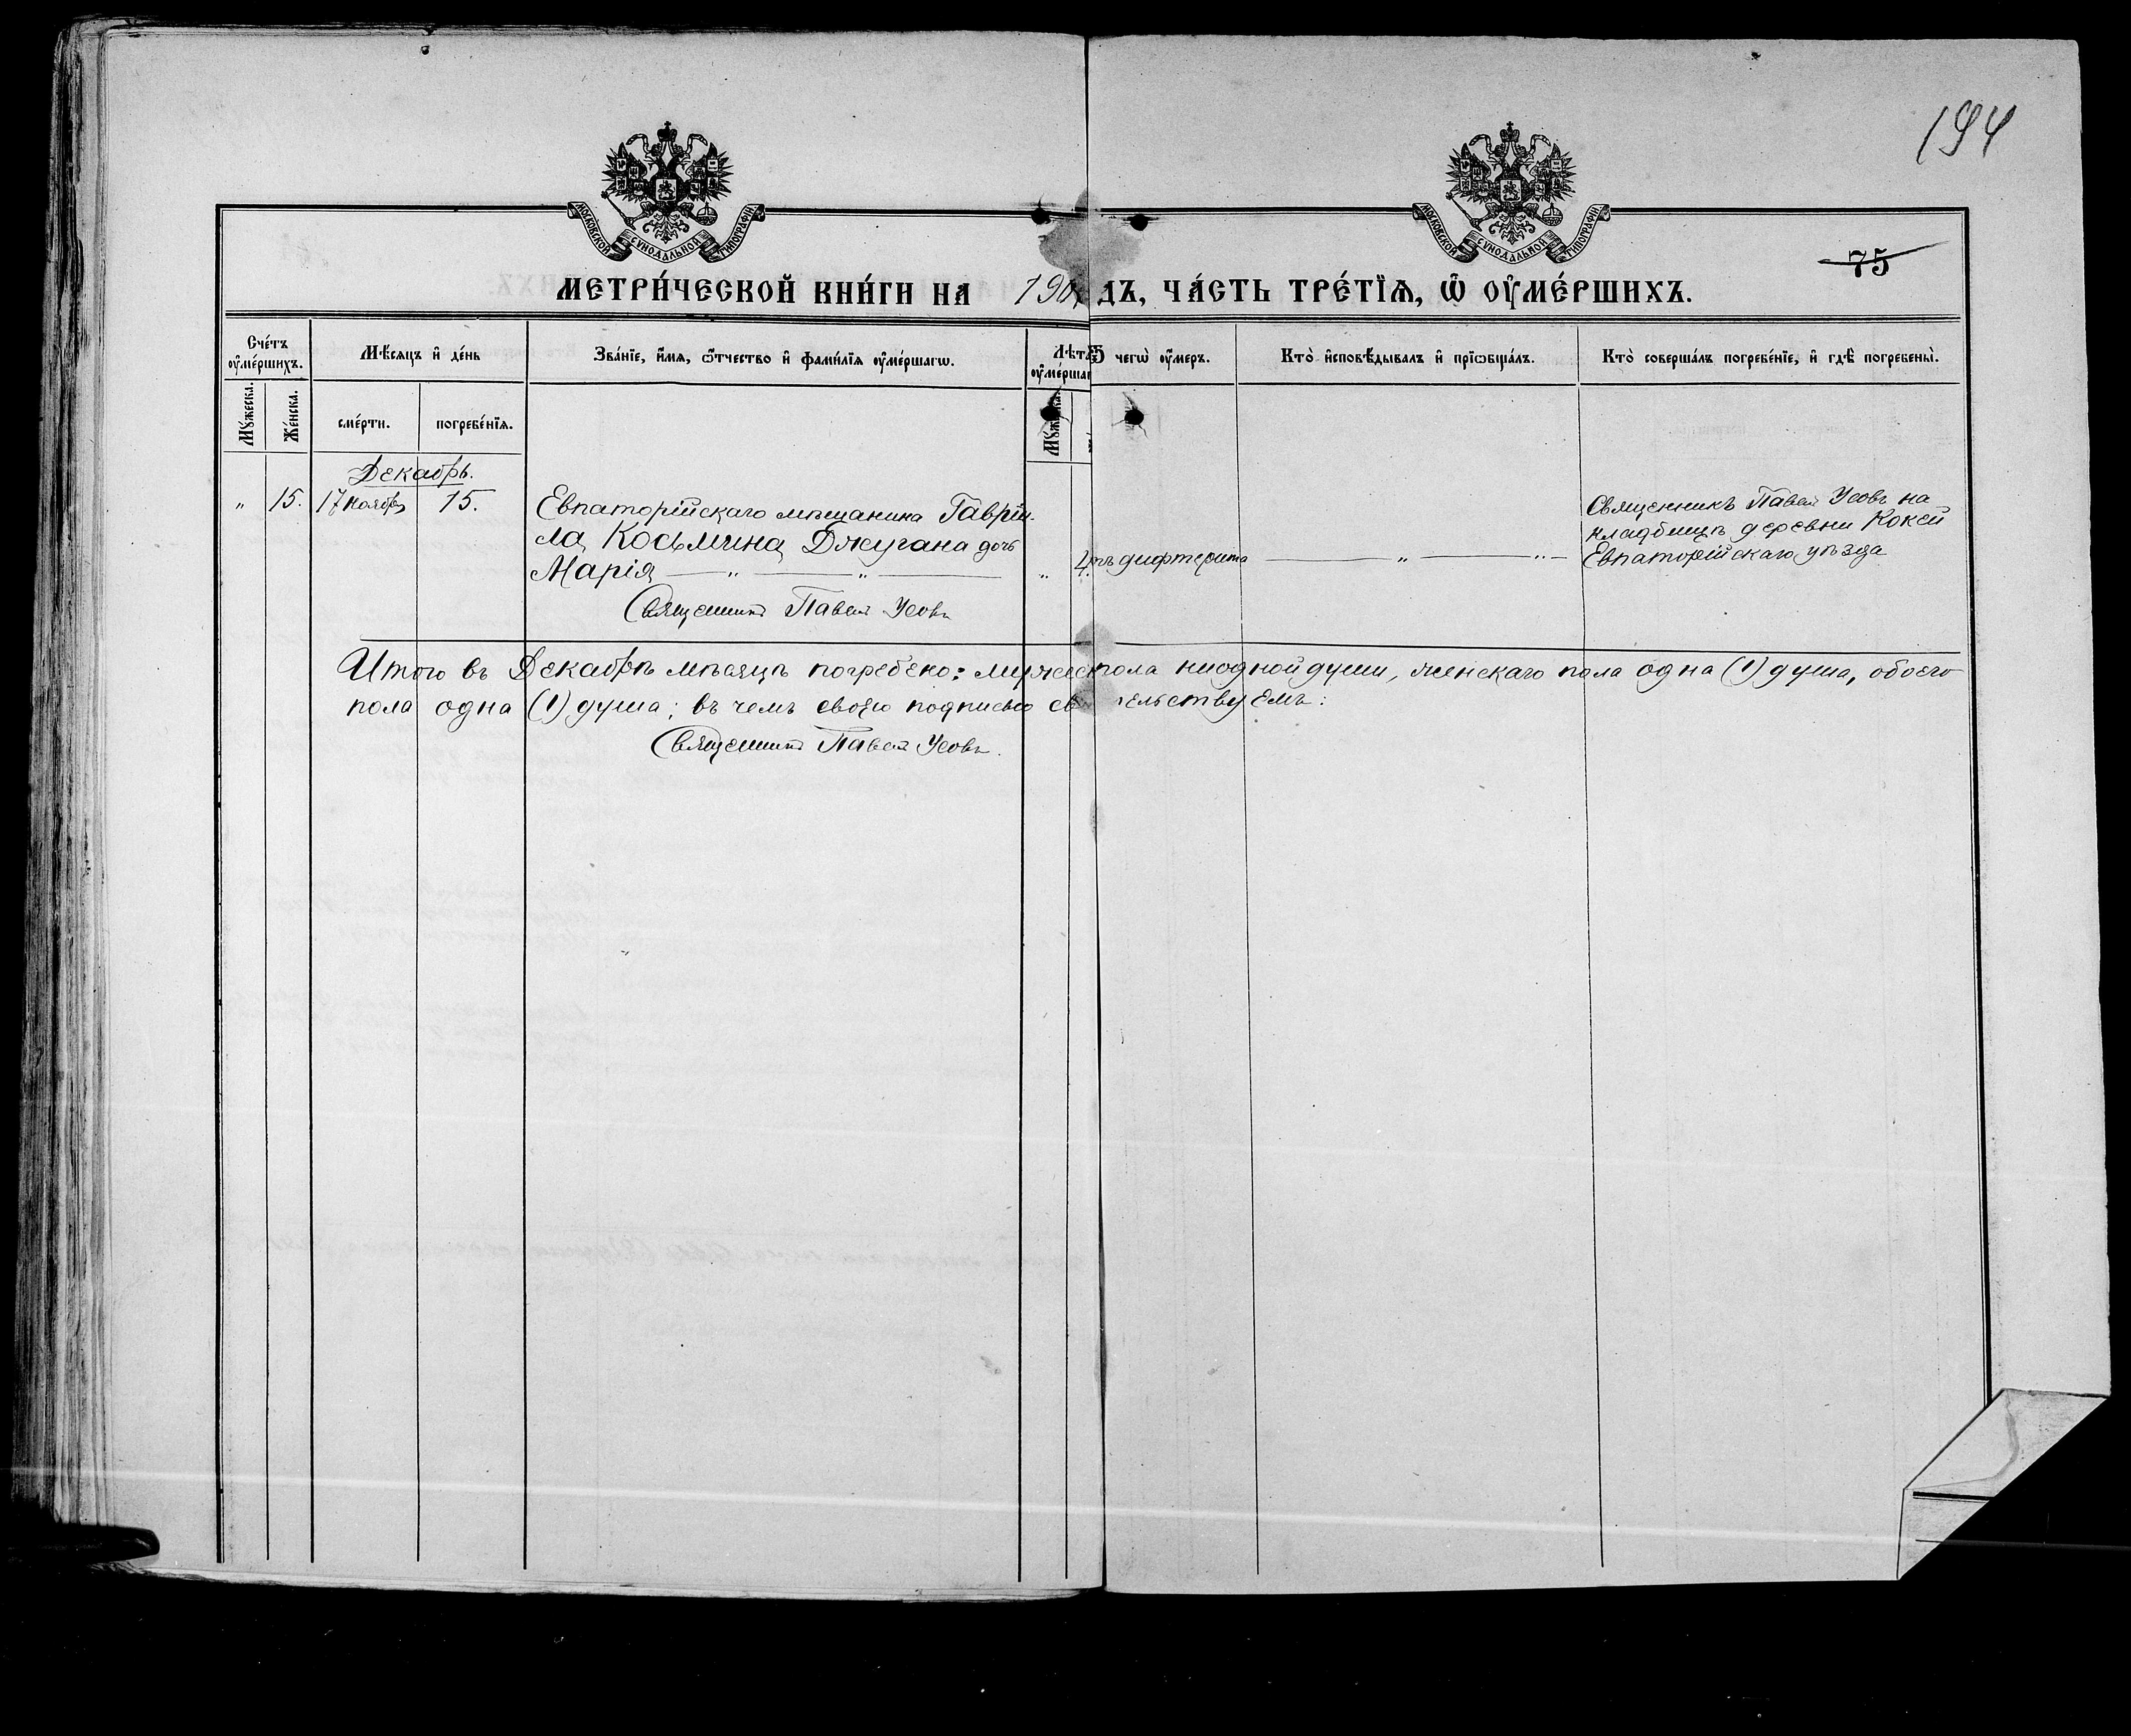 194
МОСКОВСКОЙ СУНОДАЛЬНОЙ ТИПОГРАФІИ
МОСКОВСКОЙ СУНОДАЛЬНОЙ ТИПОГРАФІИ
75
МЕТРИ́ЧЕСКОЙ КНИ́ГИ НА 190 дъ, ЧА́СТЬ ТРЕ́ТЇѦ, Ѡ҆ ОУ҆МЕ́РШИХЪ.
Сче́тъ оу҆ме́ршихъ.
Мꙋ́жеска.
Же́нска.
Мѣ́сяцъ и҆ де́нь
сме́рти.
погребе́нїѧ.
Зва́нїе, и҆́мѧ, ѻ҆́тчество и҆ фами́лїѧ оу҆ме́ршагѡ.
Лѣт
оу҆ме́рша
Мꙋ́жеска.
Ѿ чегѡ̀ оу҆́меръ.
Кто̀ и҆сповѣ́дывалъ и҆ прїѡбща́лъ.
Кто̀ соверша́лъ погребе́нїе, и҆ гдѣ̀ погребены̀.
Декабрь.
" 15. 17 ноября 15.
Евпаторійскаго мѣщанина Гаврiи-
ла Косьмина Джугана дочь
Марія — " — " —
" 4.
отъ дифтерита
— " — " —
Священникъ Павел Усовъ на
кладбищѣ деревни Кокей
Евпаторійскаго уѣзда
Священникъ Павел Усовъ
Итого въ Декабрѣ мѣсяцѣ погребено: мужеск пола ни одной души, женскаго пола одна (1) душа, обоего
пола одна (1) душа; въ чемъ своею подписью св тельствуемъ:
Священникъ Павел Усовъ.